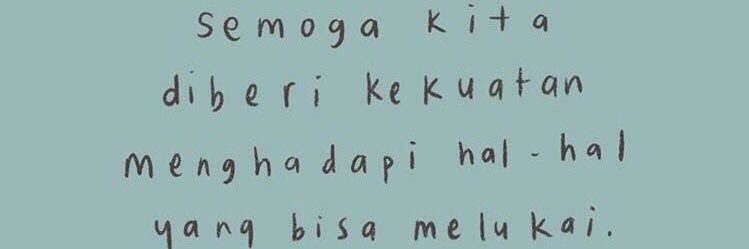 semoga kita
diberi kekuatan
menghadapi hal-hal
yang bisa melukai.